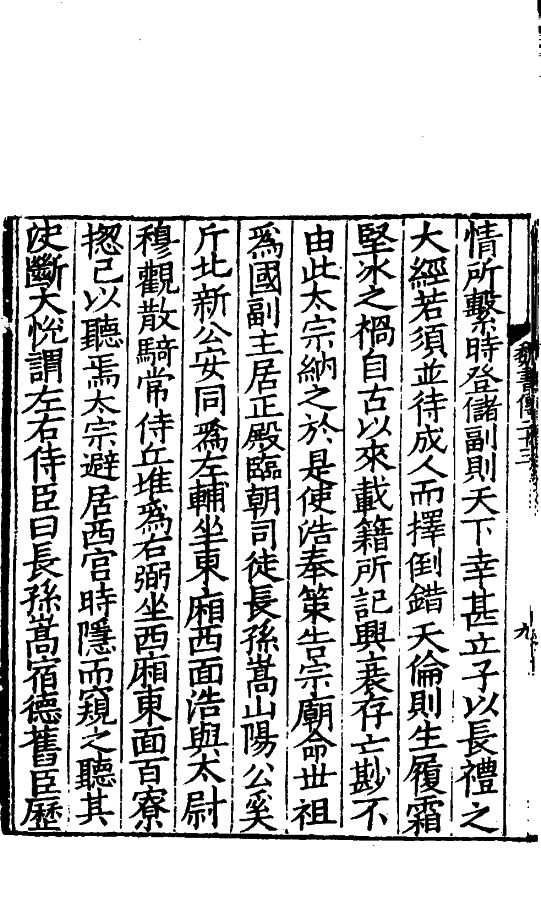 情所繫時登儲副則天下幸甚立子以長禮之
大經若須並待成人而擇倒錯天倫則生履霜
堅冰之禍自古以來載籍所記興衰存亡尠不
由此太宗納之於是使浩奉策告宗廟命世祖
爲國副主居正殿臨朝司徒長孫嵩山陽公奚
斤北新公安同爲左輔坐東廂西面浩與太尉
穆觀散騎常侍丘堆爲右弼坐西廂東面百寮
揔己以聽焉太宗避居西宮時隱而窺之聽其
決斷大悅謂左右侍臣曰長孫嵩宿德舊臣歷
魏書傳二十三
九